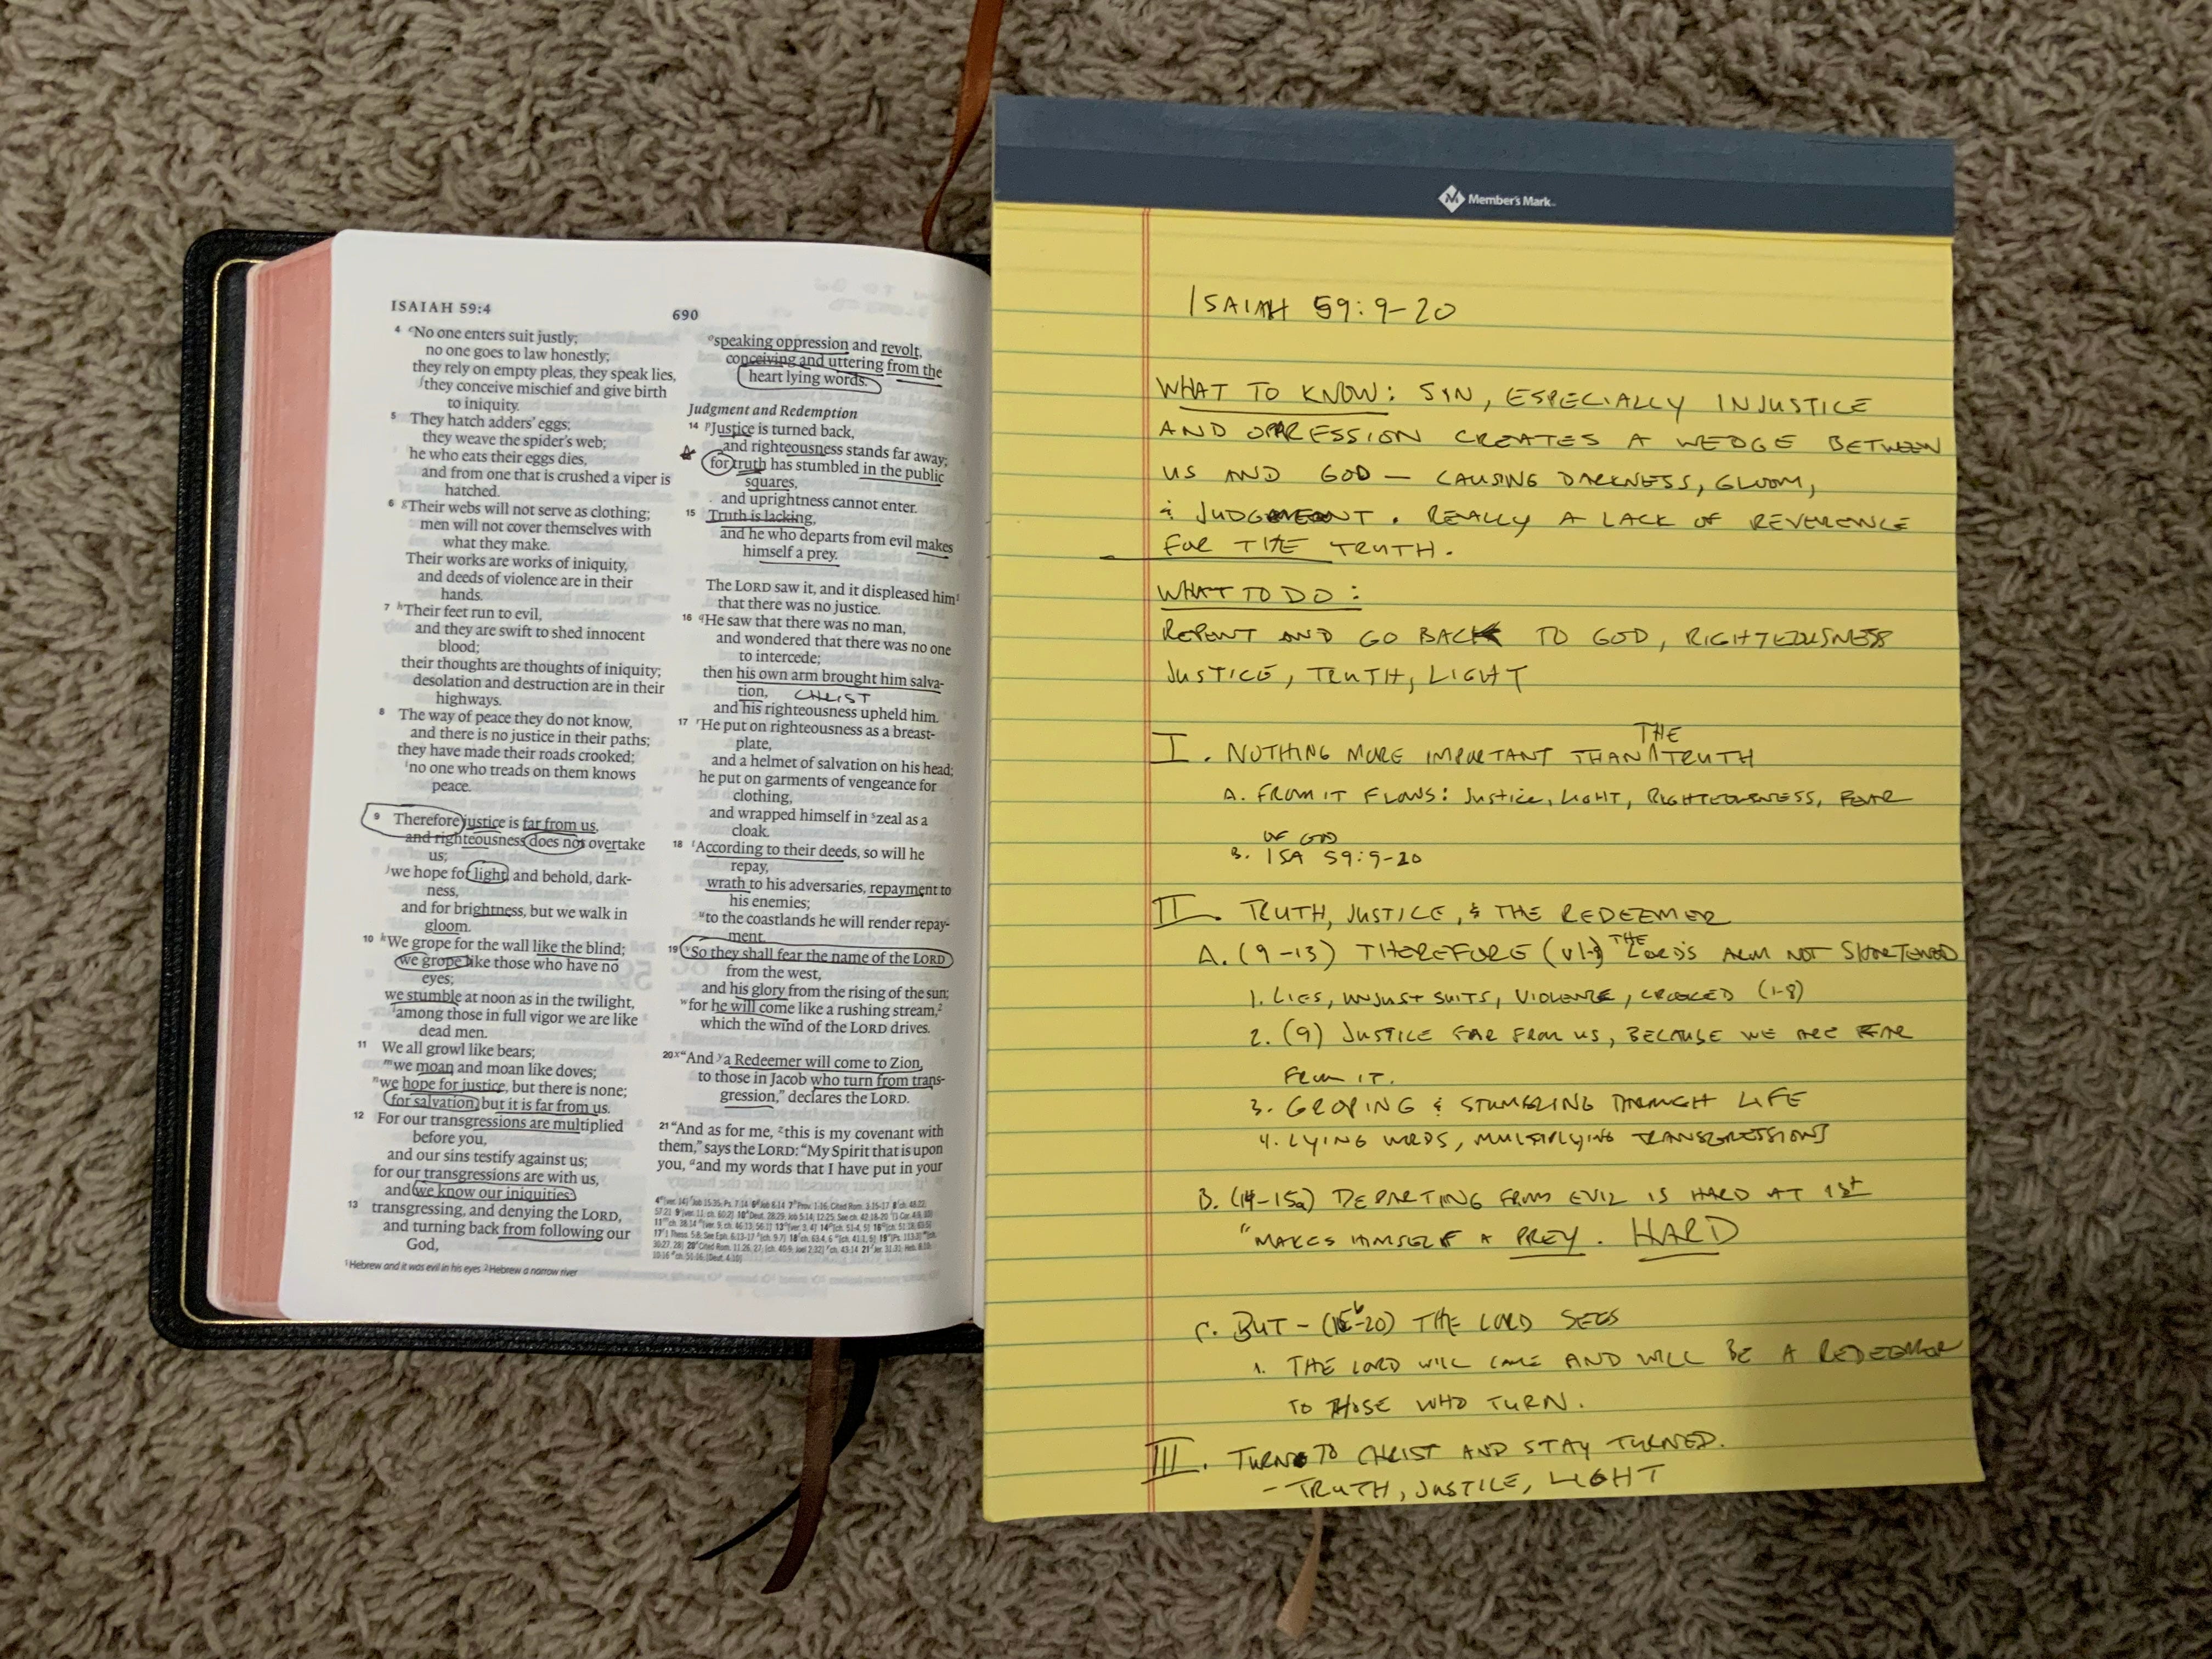 ISAIAH 59:4
690
4 eNo one enters suit justly;
no one goes to law honestly;
they rely on empty pleas, they speak lies,
fthey conceive mischief and give birth
to iniquity.
5 They hatch adders' eggs;
they weave the spider's web;
he who eats their eggs dies,
and from one that is crushed a viper is
hatched.
6 gTheir webs will not serve as clothing;
men will not cover themselves with
what they make.
Their works are works of iniquity,
and deeds of violence are in their
hands.
7 hTheir feet run to evil,
and they are swift to shed innocent
blood;
their thoughts are thoughts of iniquity;
desolation and destruction are in their
highways.
8 The way of peace they do not know,
and there is no justice in their paths;
they have made their roads crooked;
ino one who treads on them knows
peace.
9 Therefore justice is far from us,
and righteousness does not overtake
us;
jwe hope for light, and behold, dark-
ness,
and for brightness, but we walk in
gloom.
10 kWe grope for the wall like the blind;
we grope like those who have no
eyes;
we stumble at noon as in the twilight,
lamong those in full vigor we are like
dead men.
11 We all growl like bears;
mwe moan and moan like doves;
nwe hope for justice, but there is none;
for salvation, but it is far from us.
12 For our transgressions are multiplied
before you,
and our sins testify against us;
for our transgressions are with us,
and we know our iniquities:
13 transgressing, and denying the LORD,
and turning back from following our
God,
ospeaking oppression and revolt,
conceiving and uttering from the
heart lying words.
Judgment and Redemption
14 pJustice is turned back,
and righteousness stands far away;
for truth has stumbled in the public
squares,
and uprightness cannot enter.
15 Truth is lacking,
and he who departs from evil makes
himself a prey.
The LORD saw it, and it displeased him1
that there was no justice.
16 qHe saw that there was no man,
and wondered that there was no one
to intercede;
then his own arm brought him salva-
tion, CHRIST
and his righteousness upheld him.
17 rHe put on righteousness as a breast-
plate,
and a helmet of salvation on his head;
he put on garments of vengeance for
clothing,
and wrapped himself in szeal as a
cloak.
18 tAccording to their deeds, so will he
repay,
wrath to his adversaries, repayment to
his enemies;
uto the coastlands he will render repay-
ment.
19 vSo they shall fear the name of the LORD
from the west,
and his glory from the rising of the sun;
wfor he will come like a rushing stream,2
which the wind of the LORD drives.
20 x"And ya Redeemer will come to Zion,
to those in Jacob who turn from trans-
gression," declares the LORD.
21 "And as for me, zthis is my covenant with
them," says the LORD: "My Spirit that is upon
you, aand my words that I have put in your
1 Hebrew and it was evil in his eyes 2 Hebrew a narrow river
Member's Mark
ISAIAH 59:9-20
WHAT TO KNOW: SIN, ESPECIALLY INJUSTICE
AND OPPRESSION CREATES A WEDGE BETWEEN
US AND GOD — CAUSING DARKNESS, GLOOM,
& JUDGMENT. REALLY A LACK OF REVERENCE
FOR THE TRUTH.
WHAT TO DO:
REPENT AND GO BACK TO GOD, RIGHTEOUSNESS
JUSTICE, TRUTH, LIGHT
I. NOTHING MORE IMPORTANT THAN THE TRUTH
A. FROM IT FLOWS: JUSTICE, LIGHT, RIGHTEOUSNESS, FEAR
OF GOD
B. ISA 59:9-20
II. TRUTH, JUSTICE, & THE REDEEMER
A. (9-13) THEREFORE (V1-8) THE LORD'S ARM NOT SHORTENED
1. LIES, UNJUST SUITS, VIOLENCE, CROOKED (1-8)
2. (9) JUSTICE FAR FROM US, BECAUSE WE ARE FAR
FROM IT.
3. GROPING & STUMBLING THROUGH LIFE
4. LYING WORDS, MULTIPLYING TRANSGRESSIONS
B. (14-15a) DEPARTING FROM EVIL IS HARD AT 1st
"MAKES HIMSELF A PREY. HARD
C. BUT - (15b-20) THE LORD SEES
1. THE LORD WILL COME AND WILL BE A REDEEMER
TO THOSE WHO TURN.
III. TURN TO CHRIST AND STAY TURNED.
- TRUTH, JUSTICE, LIGHT